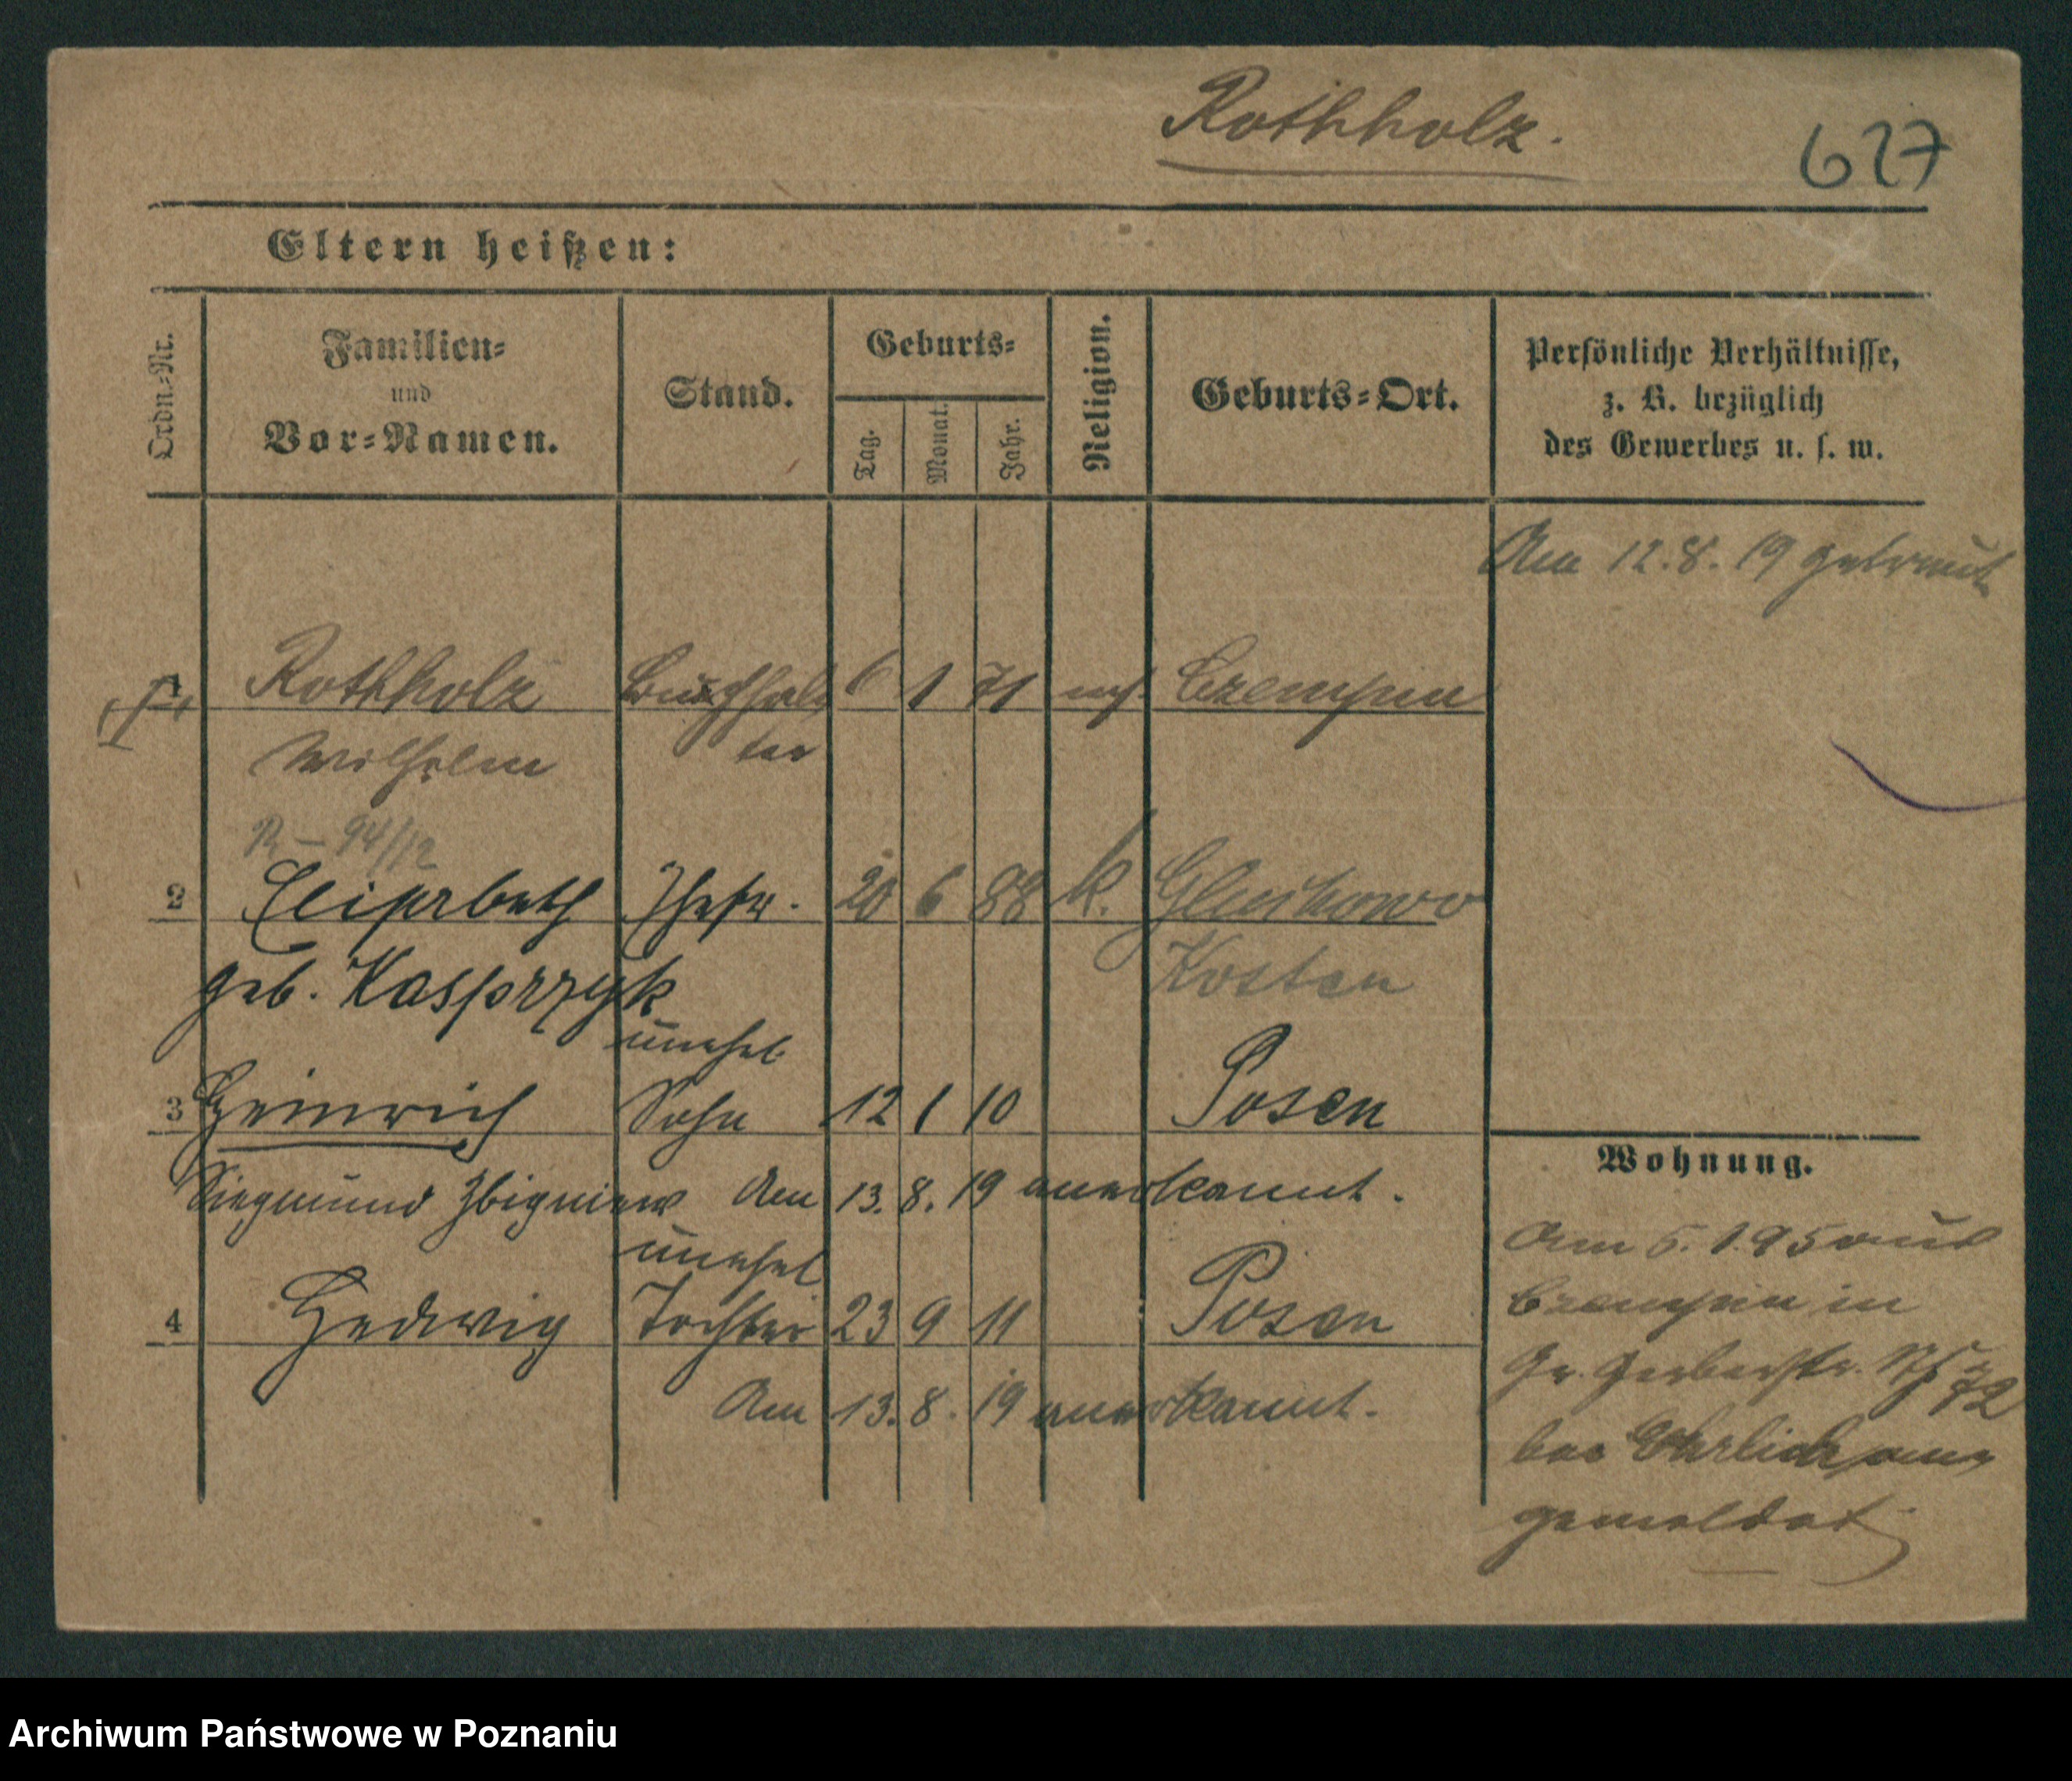 Rothholz.
627
Eltern heißen:
Ordn.-Nr.
Familien-
und
Vor-Namen.
Stand.
Geburts-
Tag.
Monat.
Jahr.
Religion.
Geburts-Ort.
Persönliche Verhältnisse,
z. B. bezüglich
des Gewerbes u. s. w.
Am 12.8.19 getraut
1 Rothholz Buchhal 6 1 71 Czempin
Wilhelm ter
R – 94/12
2 Elisabeth Ehefr. 20 6 88 k. Gluchowo
geb. Kasprzyk Kosten
unehel
3 Heinrich Sohn 12 1 10 Posen
Siegmund Zbigniew Am 13.8.19 anerkannt.
unehel
4 Hedwig Tochter 23 9 11 Posen
Am 13.8.19 anerkannt.
Wohnung.
Am 5.1.95 aus
Czempin in
Gr. Gerberstr. No 42
bei Ehrlich an-
gemeldet
Archiwum Państwowe w Poznaniu